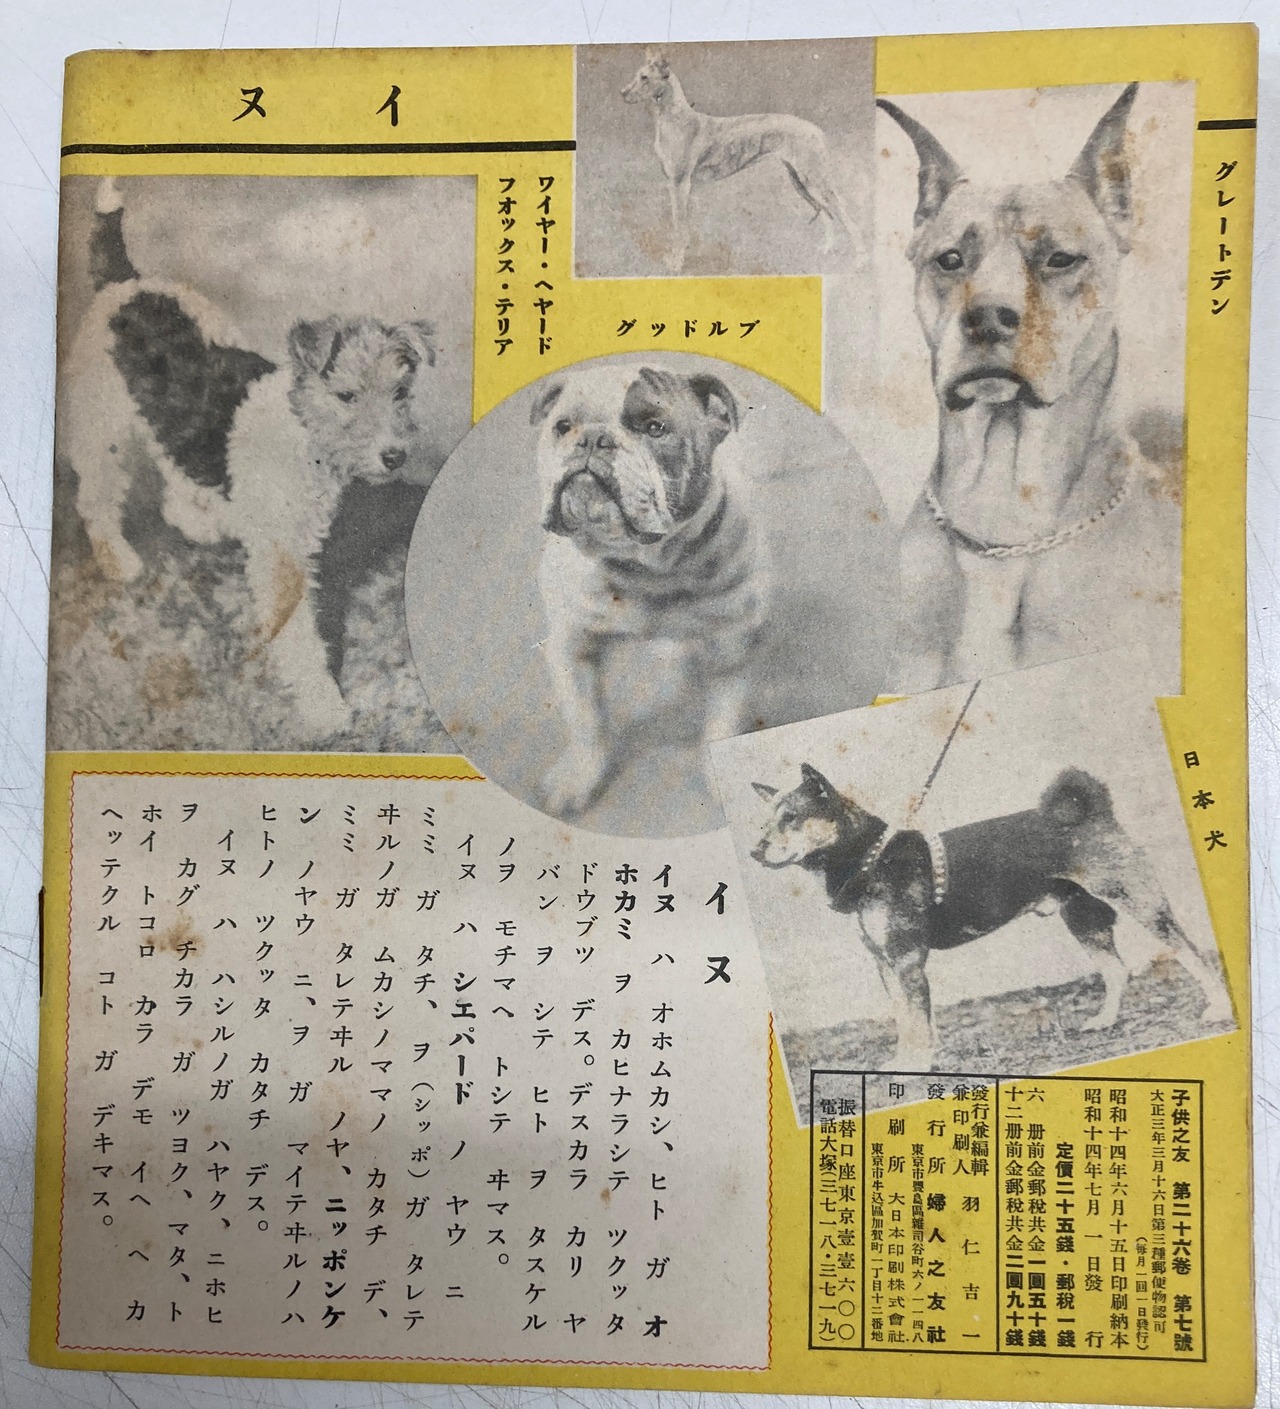 イヌ
グレートデン
ワイヤー・ヘヤード
フオックス・テリア
ブルドッグ
日本犬
イヌ
イヌ ハ オホムカシ、ヒト ガ オ
ホカミ ヲ カヒナラシテ ツクッタ
ドウブツ デス。デスカラ カリ ヤ
バン ヲ シテ ヒト ヲ タスケル
ノヲ モチマヘ トシテ ヰマス。
イヌ ハ シエパード ノ ヤウ ニ
ミミ ガ タチ、ヲ(シッポ)ガ タレテ
ヰルノガ ムカシノママノ カタチ デ、
ミミ ガ タレテヰル ノヤ、ニッポンケ
ン ノヤウ ニ、ヲ ガ マイテヰルノハ
ヒトノ ツクッタ カタチ デス。
イヌ ハ ハシルノガ ハヤク、ニホヒ
ヲ カグ チカラ ガ ツヨク、マタ、ト
ホイ トコロ カラ デモ イヘ ヘ カ
ヘッテクル コト ガ デキマス。
子供之友 第二十六卷 第七號
大正三年三月十六日第三種郵便物認可
(毎月一回一日發行)
昭和十四年六月十五日印刷納本
昭和十四年七月一日發行
定價二十五錢・郵税一錢
六册前金郵税共金一圓五十錢
十二册前金郵税共金二圓九十錢
發行兼編輯
兼印刷人 羽仁吉一
東京市豐島區雜司谷町六ノ一一四八
發行所 婦人之友社
東京市牛込區加賀町一丁目十二番地
印刷所 大日本印刷株式會社
振替口座東京壹壹六〇〇
電話大塚(三七一八・三七一九)